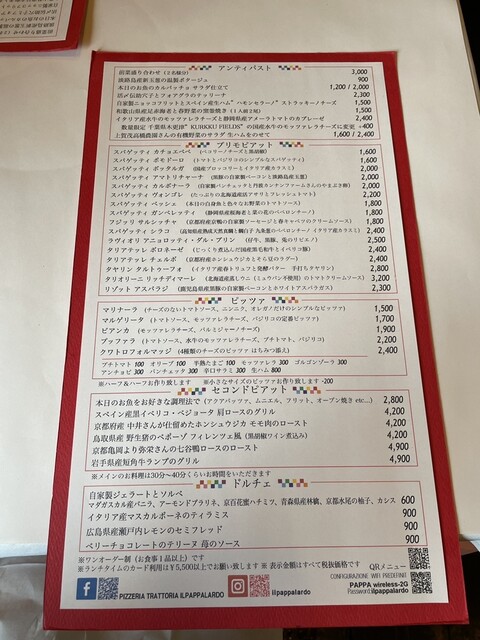 アンティパスト
前菜盛り合わせ (2名様分) 3,000
淡路島産新玉葱の温製ポタージュ 900
本日のお魚のカルパッチョ サラダ仕立て 1,200 / 2,000
活〆伝助穴子とフォアグラのテッリーナ 2,300
自家製ニョッコフリットとスペイン産生ハム"ハモンセラーノ" ストラッキーノチーズ 1,500
和歌山県産足赤海老と春野菜の瞬間燻製 (1人前2尾) 1,500
イタリア産水牛のモッツァレラチーズと静岡県産アメーラトマトのカプレーゼ 2,400
数量限定 千葉県木更津"KURKKU FIELDS"の国産水牛のモッツァレラチーズに変更 +400
上賀茂高橋農園さんの有機野菜のサラダ 生ハムをのせて 1,600 / 2,400
プリモピアット
スパゲッティ カチョエペペ (ペコリーノチーズと黒胡椒) 1,600
スパゲッティ ポモドーロ (トマトとバジリコのシンプルなスパゲッティ) 1,600
スパゲッティ ポッタルガ (国産ブロッコリーとイタリア産カラスミ) 2,000
スパゲッティ アマトリチャーナ (黒豚の自家製ベーコンと淡路島産玉葱) 2,000
スパゲッティ カルボナーラ (自家製パンチェッタと丹後カンナンファームさんのやまぶき卵) 2,000
スパゲッティ ヴォンゴレ (たっぷりの北海道産活アサリとフレッシュトマト) 2,200
スパゲッティ ペッシェ (本日の白身魚と色々なお野菜のトマトソース) 1,800
スパゲッティ ガンベレッティ (静岡県産桜海老と菜の花のペペロンチーノ) 1,800
フジッリ サルシッチャ (京都府産京鴨の自家製ソーセージと春キャベツのクリームソース) 1,800
スパゲティ シラコ (高知県産熟成天然真鯛と鯛白子 九条葱のペペロンチーノ イタリア産カラスミ) 2,400
ラヴィオリ アニョロッティ・ダル・プリン (仔牛、黒豚、兎のリピエノ) 2,500
タリアテッレ ボロネーゼ (じっくり煮込んだ国産黒毛和牛とイベリコ豚) 2,400
タリアテッレ チェルボ (京都府産ホンシュウジカとそら豆のラグー) 2,400
タヤリン タルトゥーフォ (イタリア産春トリュフと発酵バター 手打ちタヤリン) 2,800
タリオリーニ リッチディマーレ (北海道産蒸しウニ (ミョウバン不使用) のトマトクリームソース) 3,200
リゾット アスパラジ (鹿児島県産黒豚の自家製ベーコンとホワイトアスパラガス) 2,300
ピッツァ
マリナーラ (チーズのないトマトソース、ニンニク、オレガノだけのシンプルなピッツァ) 1,500
マルゲリータ (トマトソース、モッツァレラチーズ、バジリコの定番ピッツァ) 1,700
ビアンカ (モッツァレラチーズ、パルミジャーノチーズ) 1,900
ブッファラ (トマトソース、水牛のモッツァレラチーズ、プチトマト、バジリコ) 2,200
クワトロフォルマッジ (4種類のチーズのピッツァ はちみつ添え) 2,400
プチトマト 100 オリーブ 100 半熟たまご 100 モッツァレラ 300 ゴルゴンゾーラ 300
アンチョビ 300 パンチェッタ 300 辛口サラミ 300 生ハム 800
※ハーフ&ハーフお作り致します ※小さなサイズのピッツァお作り致します -200
セコンドピアット
本日のお魚をお好きな調理法で (アクアパッツァ、ムニエル、フリット、オーブン焼き etc...) 2,800
スペイン産黒イベリコ・ベジョータ 肩ロースのグリル 4,200
京都府産 中井さんが仕留めたホンシュウジカ モモ肉のロースト 4,200
鳥取県産 野生猪のペポーゾ フィレンツェ風 (黒胡椒ワイン煮込み) 4,200
京都亀岡より弥栄さんの七谷鴨ロースのロースト 4,900
岩手県産短角牛ランプのグリル 4,900
※メインのお料理は30分〜40分くらいお時間をいただきます
ドルチェ
自家製ジェラートとソルベ
マダガスカル産バニラ、アーモンドプラリネ、京百花蜜ハチミツ、青森県産林檎、京都水尾の柚子、カシス 600
イタリア産マスカルポーネのティラミス 900
広島県産瀬戸内レモンのセミフレッド 900
ベリーチョコレートのテリーヌ 苺のソース 900
※ワンオーダー制 (お食事1品以上) です
※ランチタイムのカード利用は¥5,500以上でお願い致します ※ 表示金額はすべて税抜価格です
QRメニュー
PIZZERIA TRATTORIA ILPAPPALARDO
ilpappalardo
CONFIGURAZIONE WIFI PREDEFINIT
PAPPA wireless-2G
Password:ilpappalardo